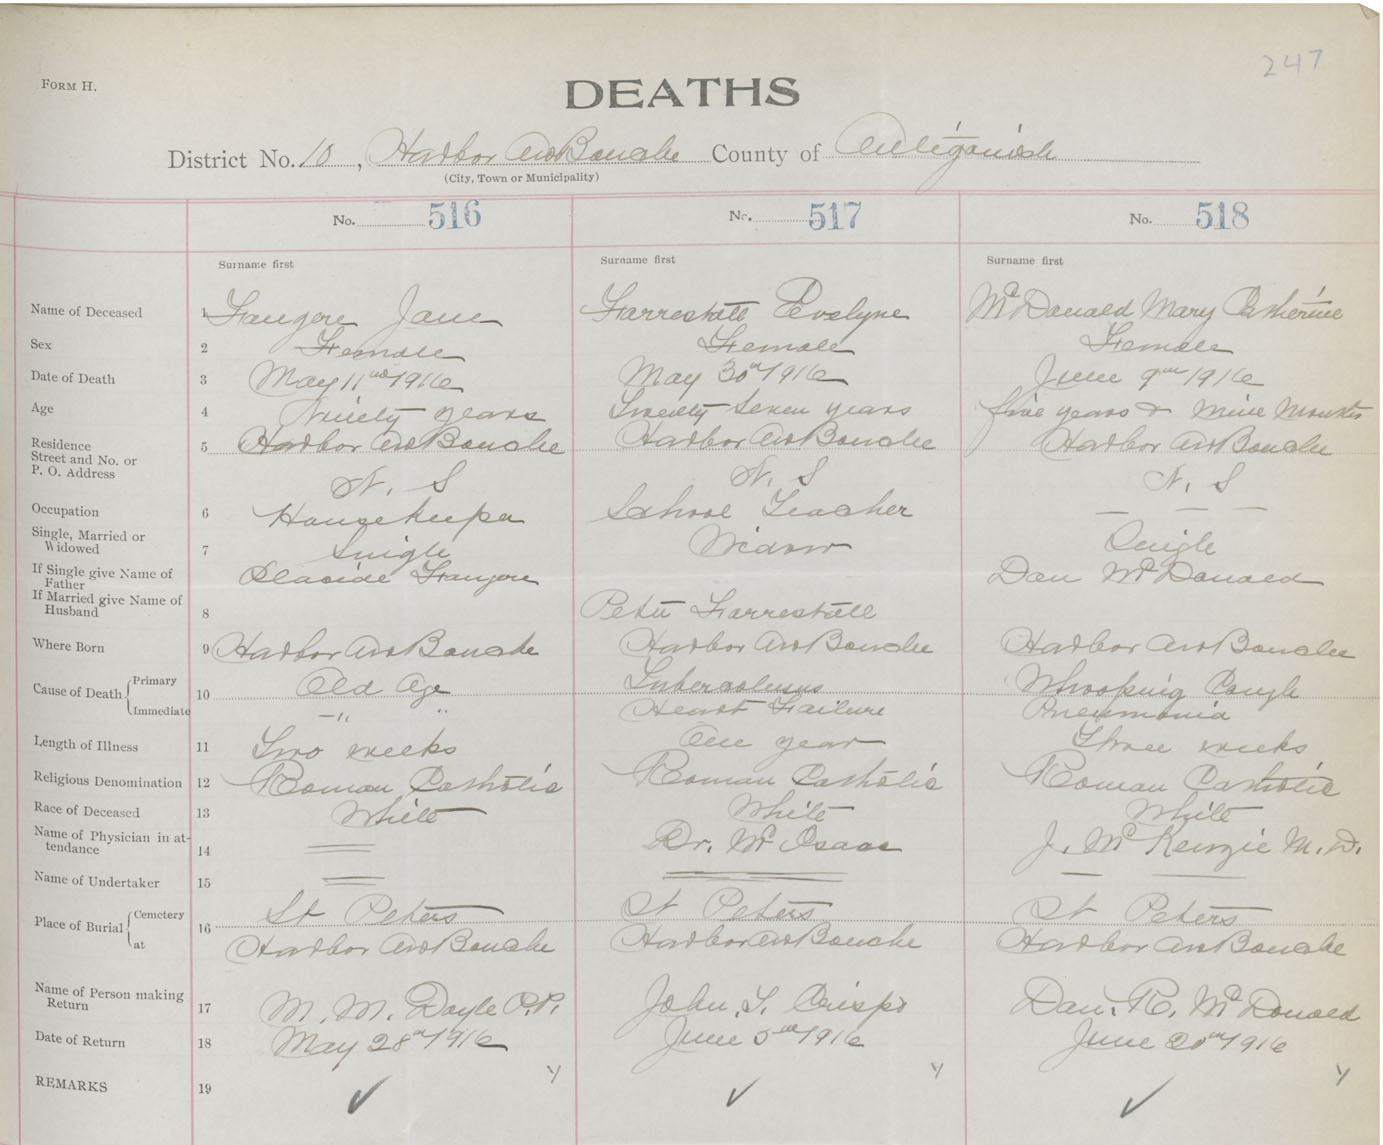 247
FORM H.
DEATHS
District No. 10, Harbor Au Bouche County of Antigonish
(City, Town or Municipality)
No. 516 No. 517 No. 518
Surname first Surname first Surname first
Name of Deceased 1 Jane Evelyne McDonald Mary Catherine
Sex 2 Female Female Female
Date of Death 3 May 11th 1916 May 30th 1916 June 9th 1916
Age 4 Ninety years Twenty Seven years five years & nine months
Residence Street and No. or P. O. Address 5 Harbor Au Bouche Harbor Au Bouche Harbor Au Bouche
N. S N. S N. S
Occupation 6 Housekeeper School Teacher — — —
Single, Married or Widowed 7 Single Widow Single
If Single give Name of Father Placide Dan McDonald
If Married give Name of Husband 8 Peter
Where Born 9 Harbor Au Bouche Harbor Au Bouche Harbor Au Bouche
Cause of Death Primary 10 Old Age Tuberculosus Whooping Cough
Immediate " " Heart Failure Pneumonia
Length of Illness 11 Two weeks One year Three weeks
Religious Denomination 12 Roman Catholic Roman Catholic Roman Catholic
Race of Deceased 13 White White White
Name of Physician in attendance 14 Dr. McIsaac J. McKenzie M. D.
Name of Undertaker 15
Place of Burial Cemetery 16 St Peters St Peters St Peters
at Harbor Au Bouche Harbor Au Bouche Harbor Au Bouche
Name of Person making Return 17 M. M. Doyle P.P. John L. Crispo Dan. R. McDonald
Date of Return 18 May 28th 1916 June 5th 1916 June 20th 1916
REMARKS 19 ✓ y ✓ y ✓ y